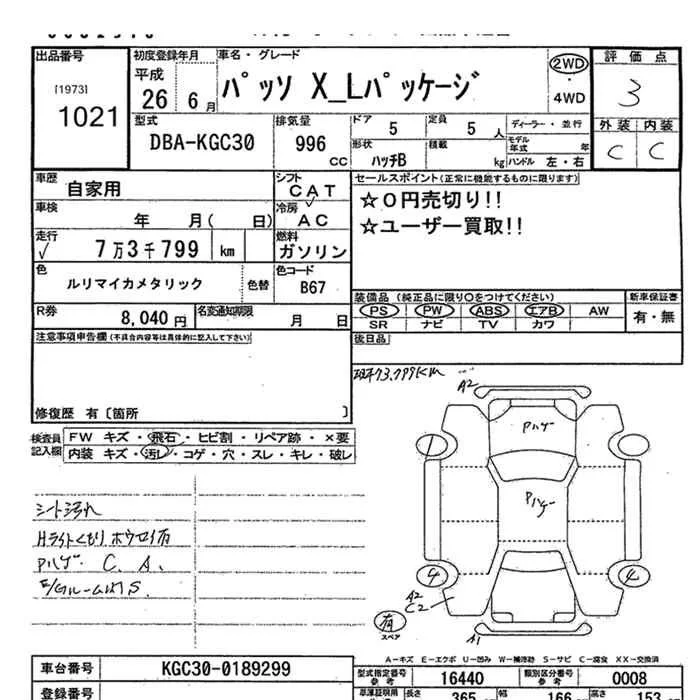 出品番号
[1973]
1021
初度登録年月
平成
26年 6月
車名・グレード
パッソ X_Lパッケージ
2WD
・
4WD
評価点
3
外装 内装
C C
型式
DBA-KGC30
排気量
996
CC
ドア 5
定員 5 人
形状 ハッチB
積載 kg
ディーラー・並行
モデル年式 年
ハンドル 左・右
車歴 自家用
シフト
CAT
車検 年 月( 日)
冷房
AC
走行
✓ 7万3千799 km
燃料
ガソリン
色
ルリマイカメタリック
色替
色コード
B67
R券 8,040円
名変通知期限
月 日
セールスポイント(正常に機能するものに限ります)
☆0円売切り!!
☆ユーザー買取!!
装備品 (純正品に限り○をつけてください)
PS PW ABS エアB AW
SR ナビ TV カワ
新車保証書
有・無
後日品
注意事項申告欄(不具合内容等は具体的に記入して下さい)
修復歴 有〔箇所 〕
検査員記入欄
FW キズ・飛石・ヒビ割・リペア跡・×要
内装 キズ・汚レ・コゲ・穴・スレ・キレ・破レ
73,799KM
A2
Pハゲ
Pハゲ
1
4
4
A2
C2
A1
有
スペア
シート汚れ
Hライトくもり
Pハゲ. C. A.
A-キズ E-エクボ U-凹み W-補修跡 S-サビ C-腐食 XX-交換済
車台番号 KGC30-0189299
型式指定番号 参考 16440
類別区分番号 参考 0008
登録番号
長さ 365 幅 166 高さ 153